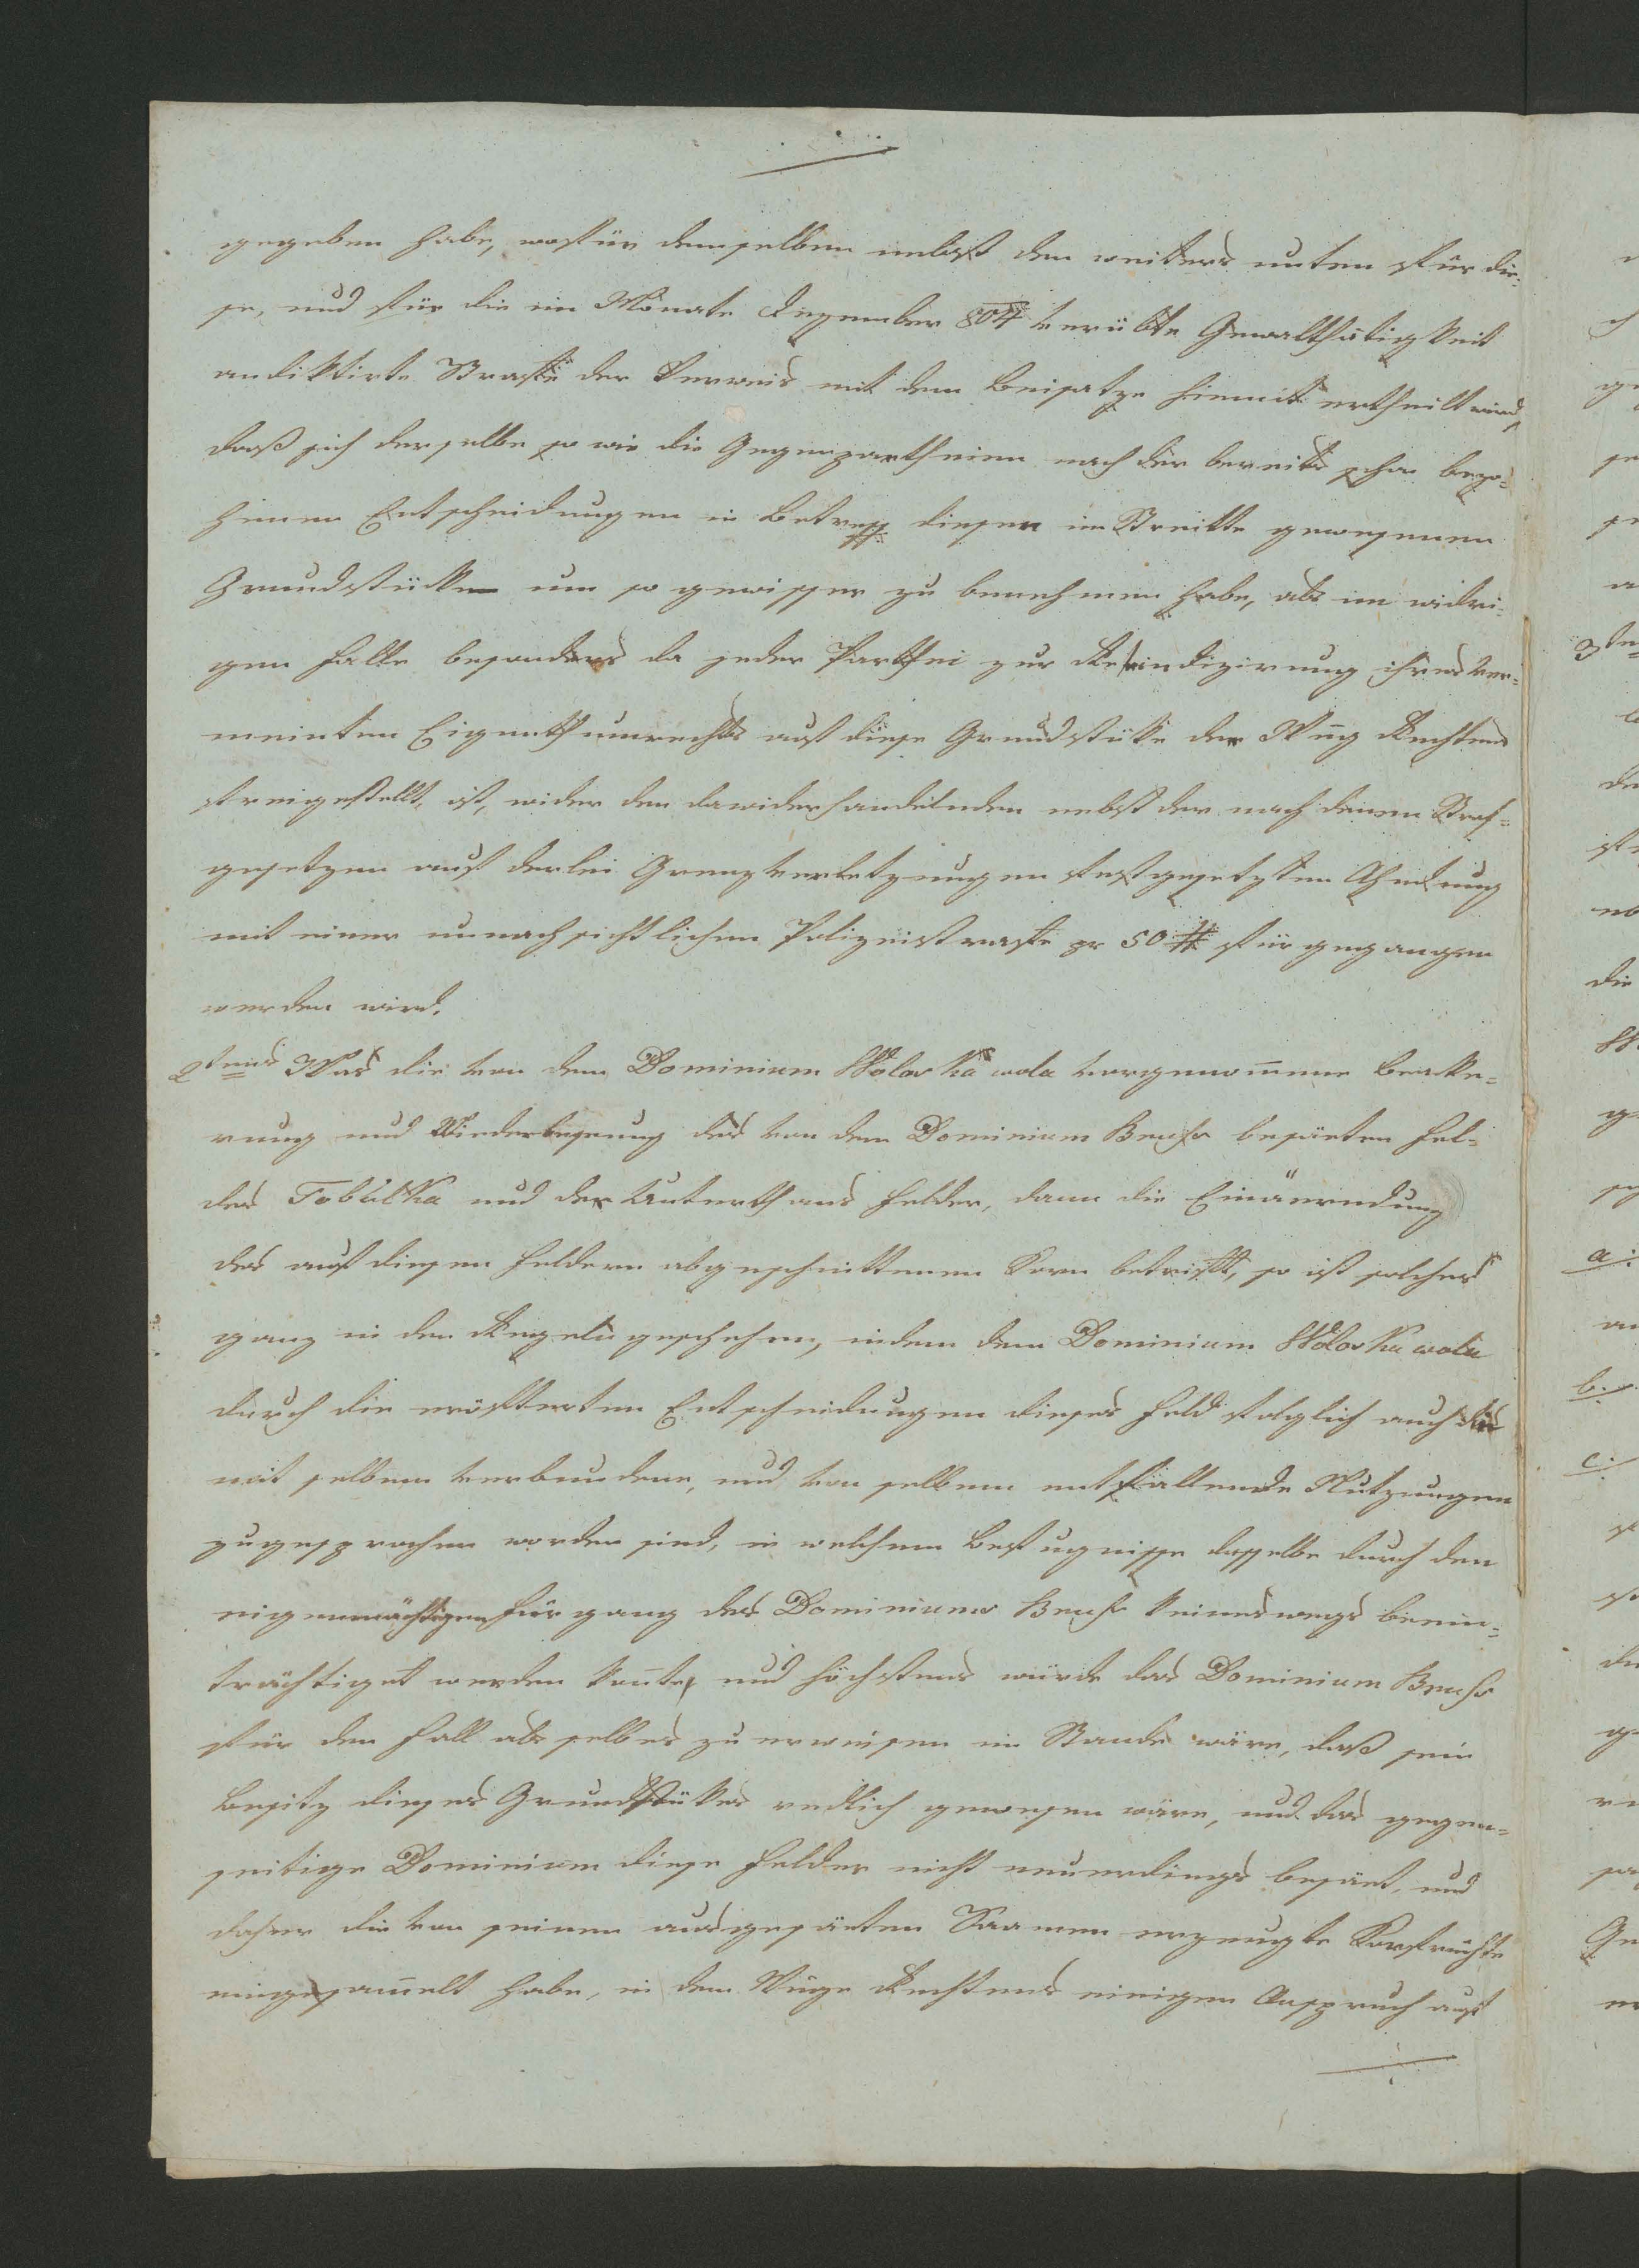 gegeben habe, wofür demselben nebst den weiters unten für die-
se, und für die im Monate Dezember 804 verübte Gewaltthätigkeit
andiktirte Strafe der Verweis mit dem Beisatze hiemit ertheilt wird,
daß sich derselbe so wie die Gegenpartheien nach der bereits schon bezo-
henen Entscheidungen in Betreff diesen im Streitte gewesenen
Grundstücken um so gewisser zu benehmen habe, als im widri-
gen Falle besonders da jeder Parthei zur Revindizirung ihres ver-
meinten Eigenthumrechts auf diese Grundstüke der Weg Rechtens
freigestellt ist, wider den dawiderhandelnden nebst der nach denen Straf-
gesetzen auf derlei Grenzverletzungen festgesetzten Ahndung
mit einer unnachsichtlichen Polizeistrafe pr 50 # fürgegangen
werden wird.
2tens Was die von dem Dominium Wolos Ka wola vorgenom̄ene Beake-
rung und Wiederbesäung des von dem Dominium Brusr besäeten Fel-
des Tobulka und der Unterthans Felder, dann die Einäerndung
des auf diesen Feldern abgeschnittenen Korn betrifft, so ist solches
ganz in der Regel geschehen, indem dem Dominium Wolos Ka wola
durch die eröfterten Entscheidungen dieses Feld folglich auch die
mit selbem verbundene, und von selbem entfallende Nutzungen
zugesprochen worden sind, in welchem Befugnisse dasselbe durch den
eigenmächtigen Fürgang des Dominiums Brusr keineswegs beein-
trächtiget werden kon̄te, und höchstens würde das Dominium Brusr
für den Fall als selbes zu erweisen im Stande wäre, daß sein
Besitz dieses Grundstükes redlich gewesen wäre, und das gegen-
seitige Dominium diese Felder nicht neuerdings besäet, und
daher die von seinem ausgesäeten Saamen erzeugte Kornfrüchte
eingesam̄elt habe, in dem Wege Rechtens einigen Anspruch auf